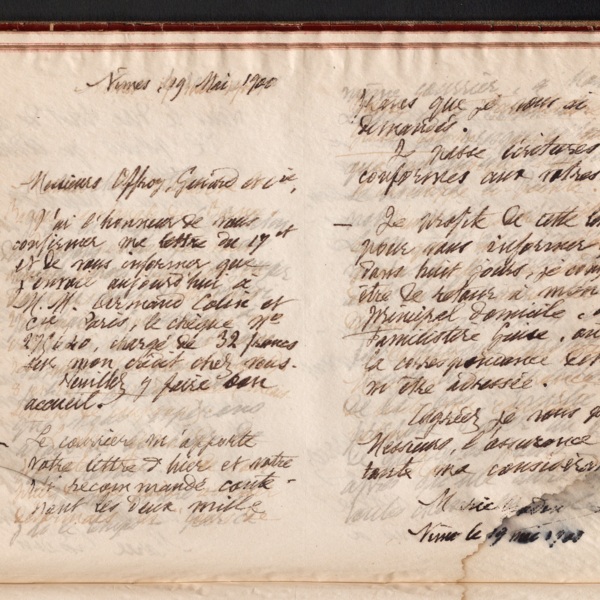 Nîmes 19 Mai 1900
Messieurs Offroy, Guiard et Cie,
J'ai l'honneur de vous
confirmer ma lettre du 17 ct
et de vous informer que
j'envoie aujourd'hui à
M. M. Armand Colin et
Cie Paris, le chèque No
276640, chargé de 32 francs
sur mon crédit chez vous.
Veuillez y faire bon
accueil.
Le courrier m'apporte
votre lettre d'hier et votre
pli recommandé conte-
nant les deux mille
francs que je vous ai
demandés.
Je passe écritures
conformes aux vôtres
— Je profite de cette
pour vous informer
dans huit jours, je
être de retour à mon
principal domicile,
Familistère Guise, où
la correspondance
m'être adressée.
Agréez je vous
Messieurs, l'assurance
toute ma
Marie
Nîmes le 19 mai 1900